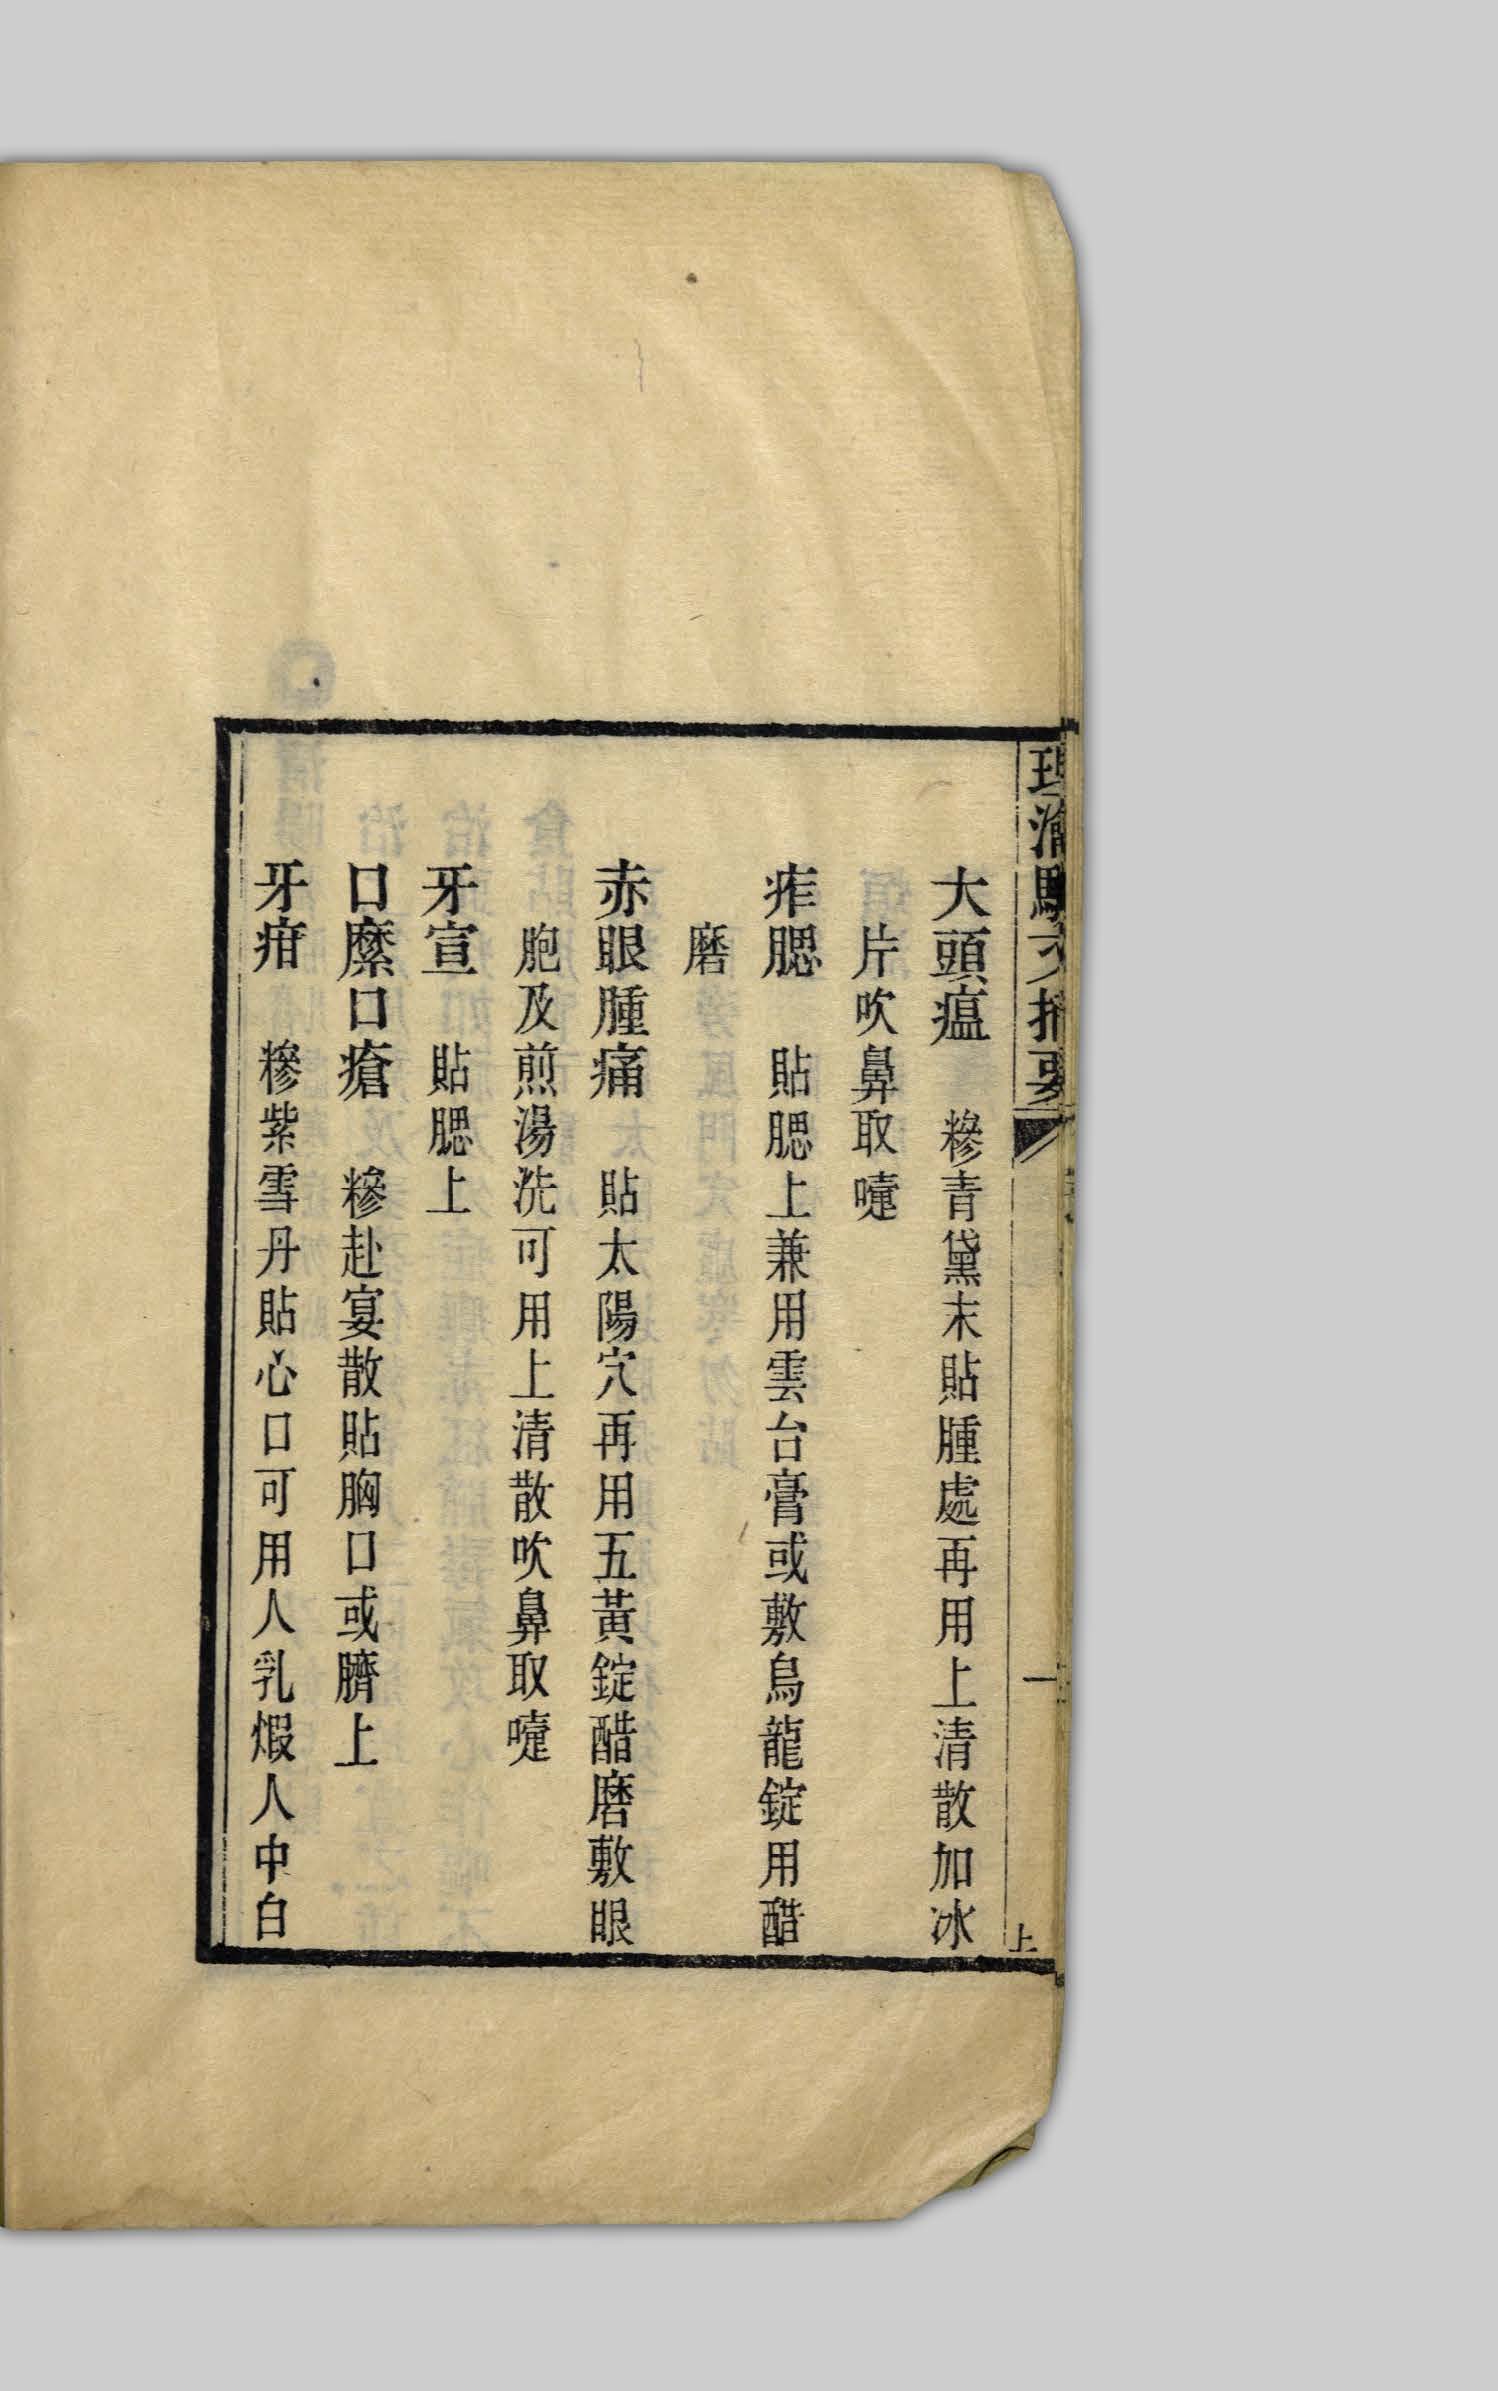 理瀹駢文摘要
一
上
大頭瘟　糝青黛末貼腫處再用上清散加冰
片吹鼻取嚏
痄腮　貼腮上兼用雲台膏或敷烏龍錠用醋
磨
赤眼腫痛　貼太陽穴再用五黃錠醋磨敷眼
胞及煎湯洗可用上清散吹鼻取嚏
牙宣　貼腮上
口糜口瘡　糝赴宴散貼胸口或臍上
牙疳　糝紫雪丹貼心口可用人乳煆人中白